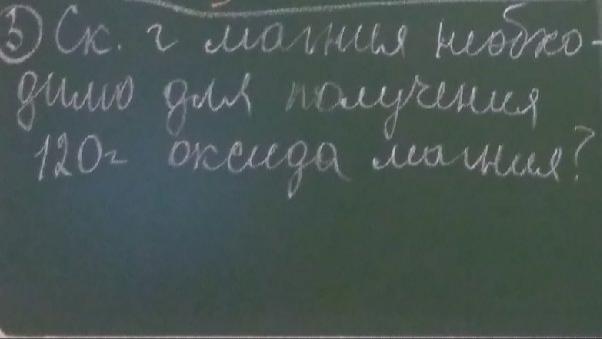 ③ Ск. г магния необхо-
димо для получения
120г оксида магния?